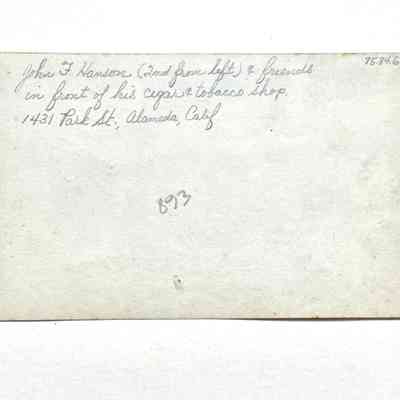 John F. Hanson (2nd from left) & friends
in front of his cigar & tobacco shop.
1431 Park St., Alameda, Calif
893